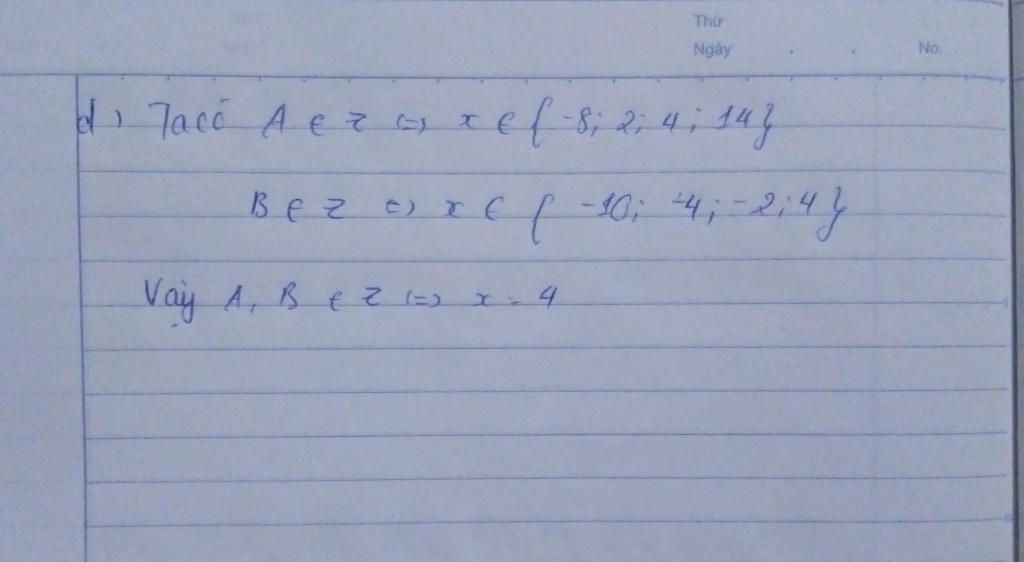 Thứ
Ngày . . No.
d) Ta có A ∈ Z (=) x ∈ { -8; 2; 4; 14}
B ∈ Z (=) x ∈ { -10; -4; -2; 4}
Vậy A, B ∈ Z (=) x = 4